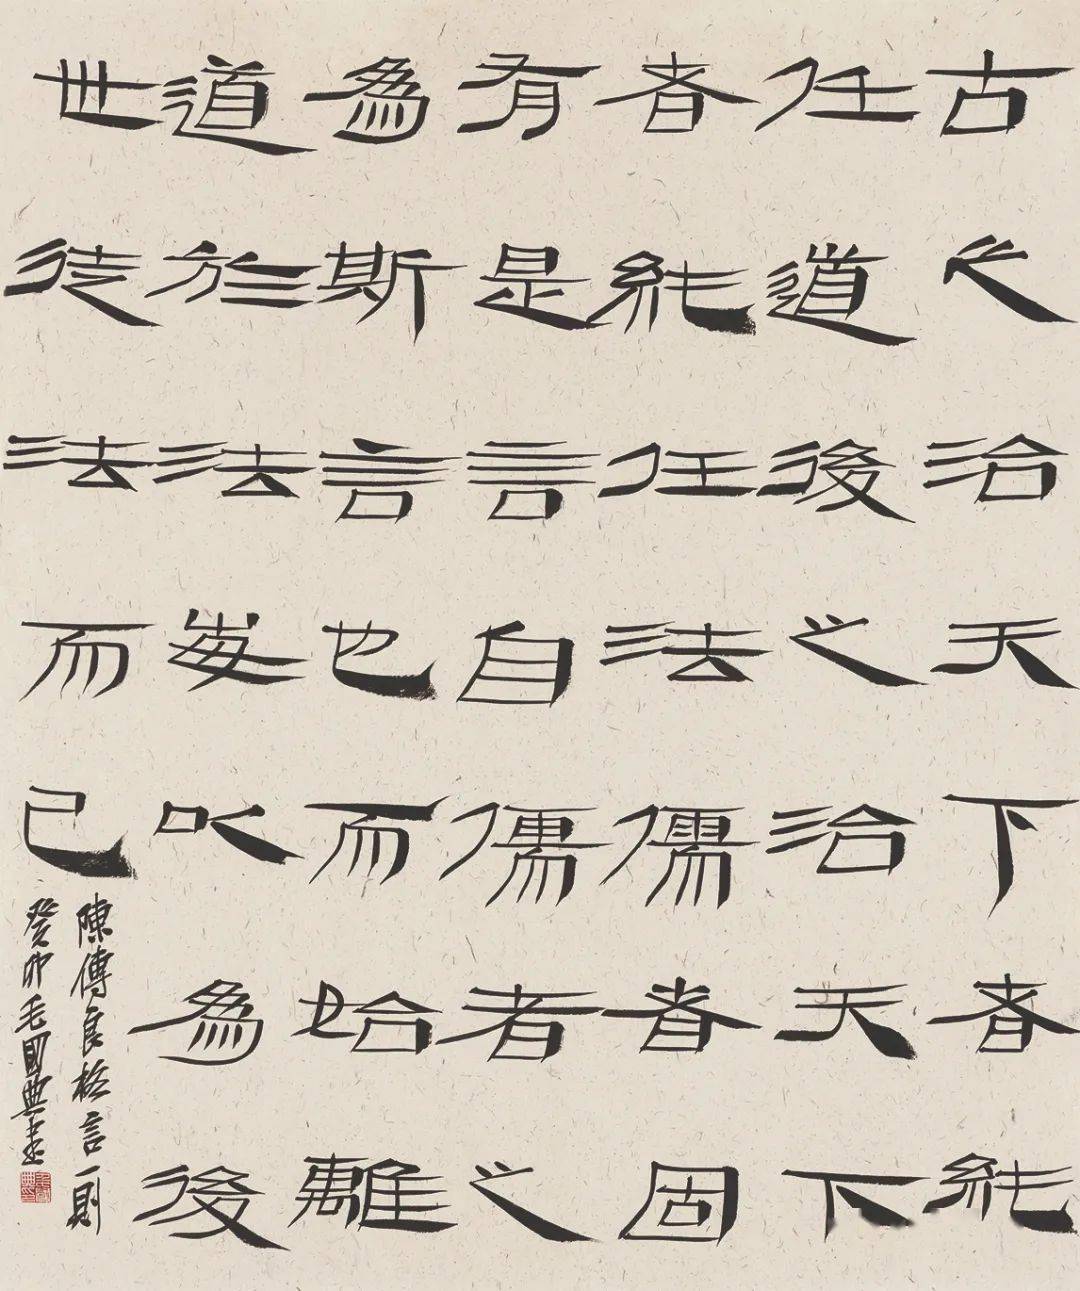 古之治天下者純
任道後之治天下
者純任法儒者固
有是言自儒者之
為斯言也而始離
道於法每以為後
世徒法而已
陳傅良格言一則
癸卯毛國典書